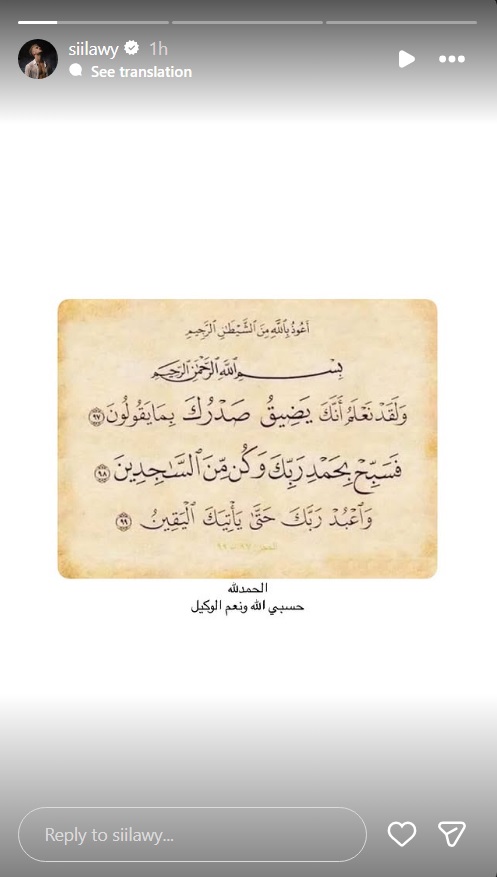 siilawy 1h
See translation
أَعُوذُ بِاللَّهِ مِنَ الشَّيْطَٰنِ الرَّجِيمِ
بِسْمِ اللَّهِ الرَّحْمَٰنِ الرَّحِيمِ
وَلَقَدْ نَعْلَمُ أَنَّكَ يَضِيقُ صَدْرُكَ بِمَا يَقُولُونَ ٩٧
فَسَبِّحْ بِحَمْدِ رَبِّكَ وَكُن مِّنَ السَّٰجِدِينَ ٩٨
وَاعْبُدْ رَبَّكَ حَتَّىٰ يَأْتِيَكَ الْيَقِينُ ٩٩
الحجر: ٩٧ - ٩٩
الحمدلله
حسبي الله ونعم الوكيل
Reply to siilawy...